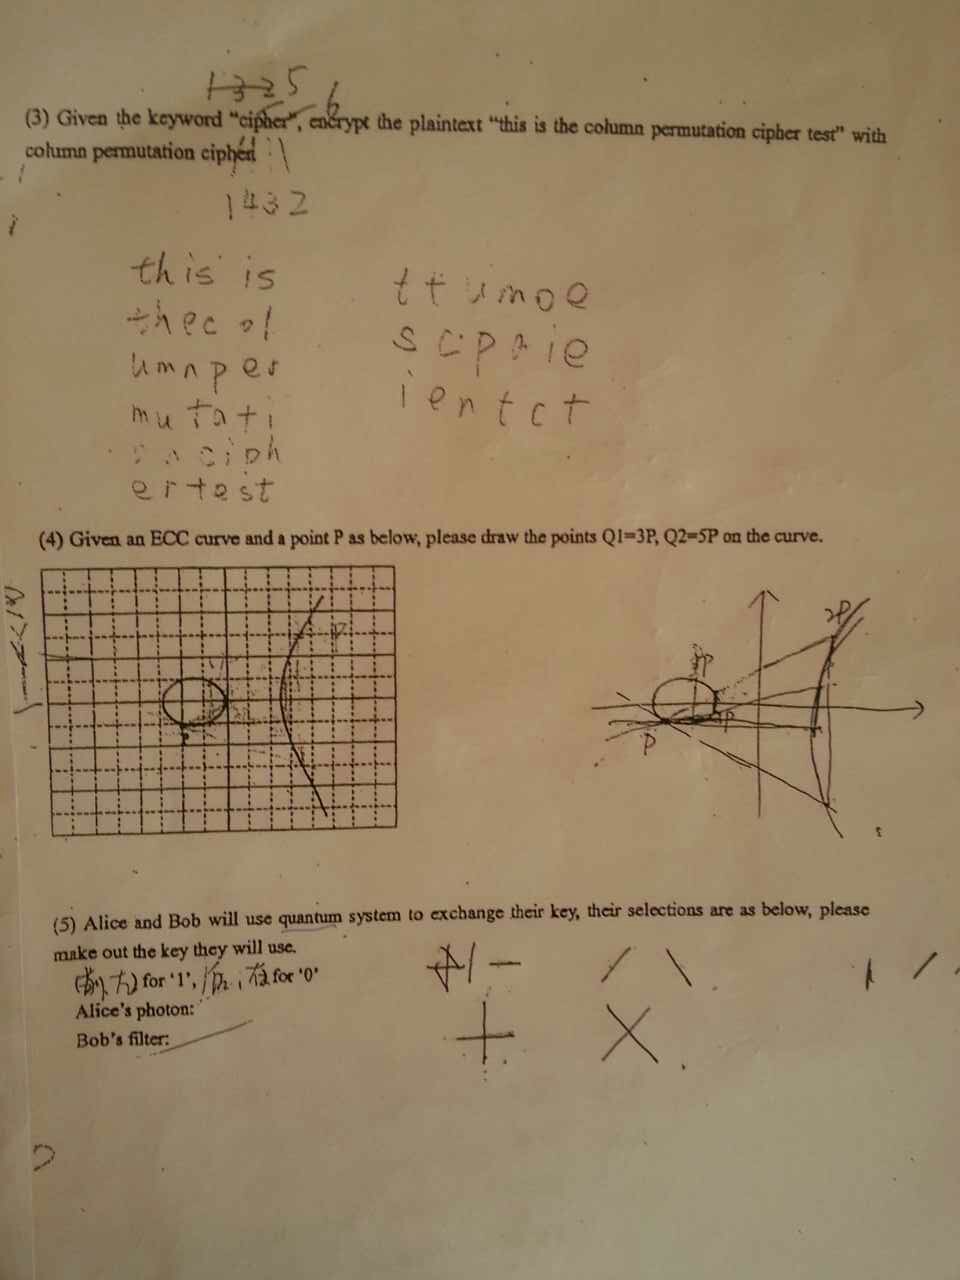 (3) Given the keyword "cipher", encrypt the plaintext "this is the column permutation cipher test" with
column permutation cipher
1432
this is
thecol
umnper
mutati
onciph
ertest
ttumoe
scpaie
ientct
(4) Given an ECC curve and a point P as below, please draw the points Q1=3P, Q2=5P on the curve.
P
P
2P
P
(5) Alice and Bob will use quantum system to exchange their key, their selections are as below, please
make out the key they will use.
for '1', for '0'
Alice's photon:
Bob's filter: